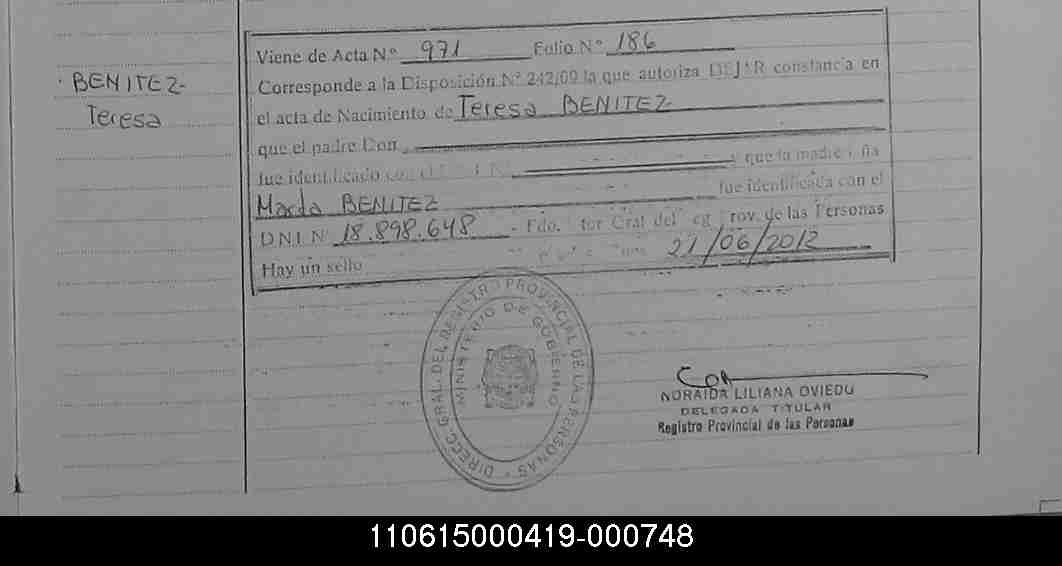 BENITEZ-
Teresa
Viene de Acta Nº 971 Folio Nº 186
Corresponde a la Disposición Nº 242/09 la que autoriza DEJAR constancia en
el acta de Nacimiento de Teresa BENITEZ
que el padre Don
fue identificado con y que la madre
Marta BENITEZ fue identificada con el
DNI Nº 18.898.648 - Fdo. Gral del Prov. de las Personas
Hay un sello 21/06/2012
DIRECC. GRAL. DEL REGISTRO PROVINCIAL DE LAS PERSONAS
MINISTERIO DE GOBIERNO
NORAIDA LILIANA OVIEDO
DELEGADA TITULAR
Registro Provincial de las Personas
110615000419-000748